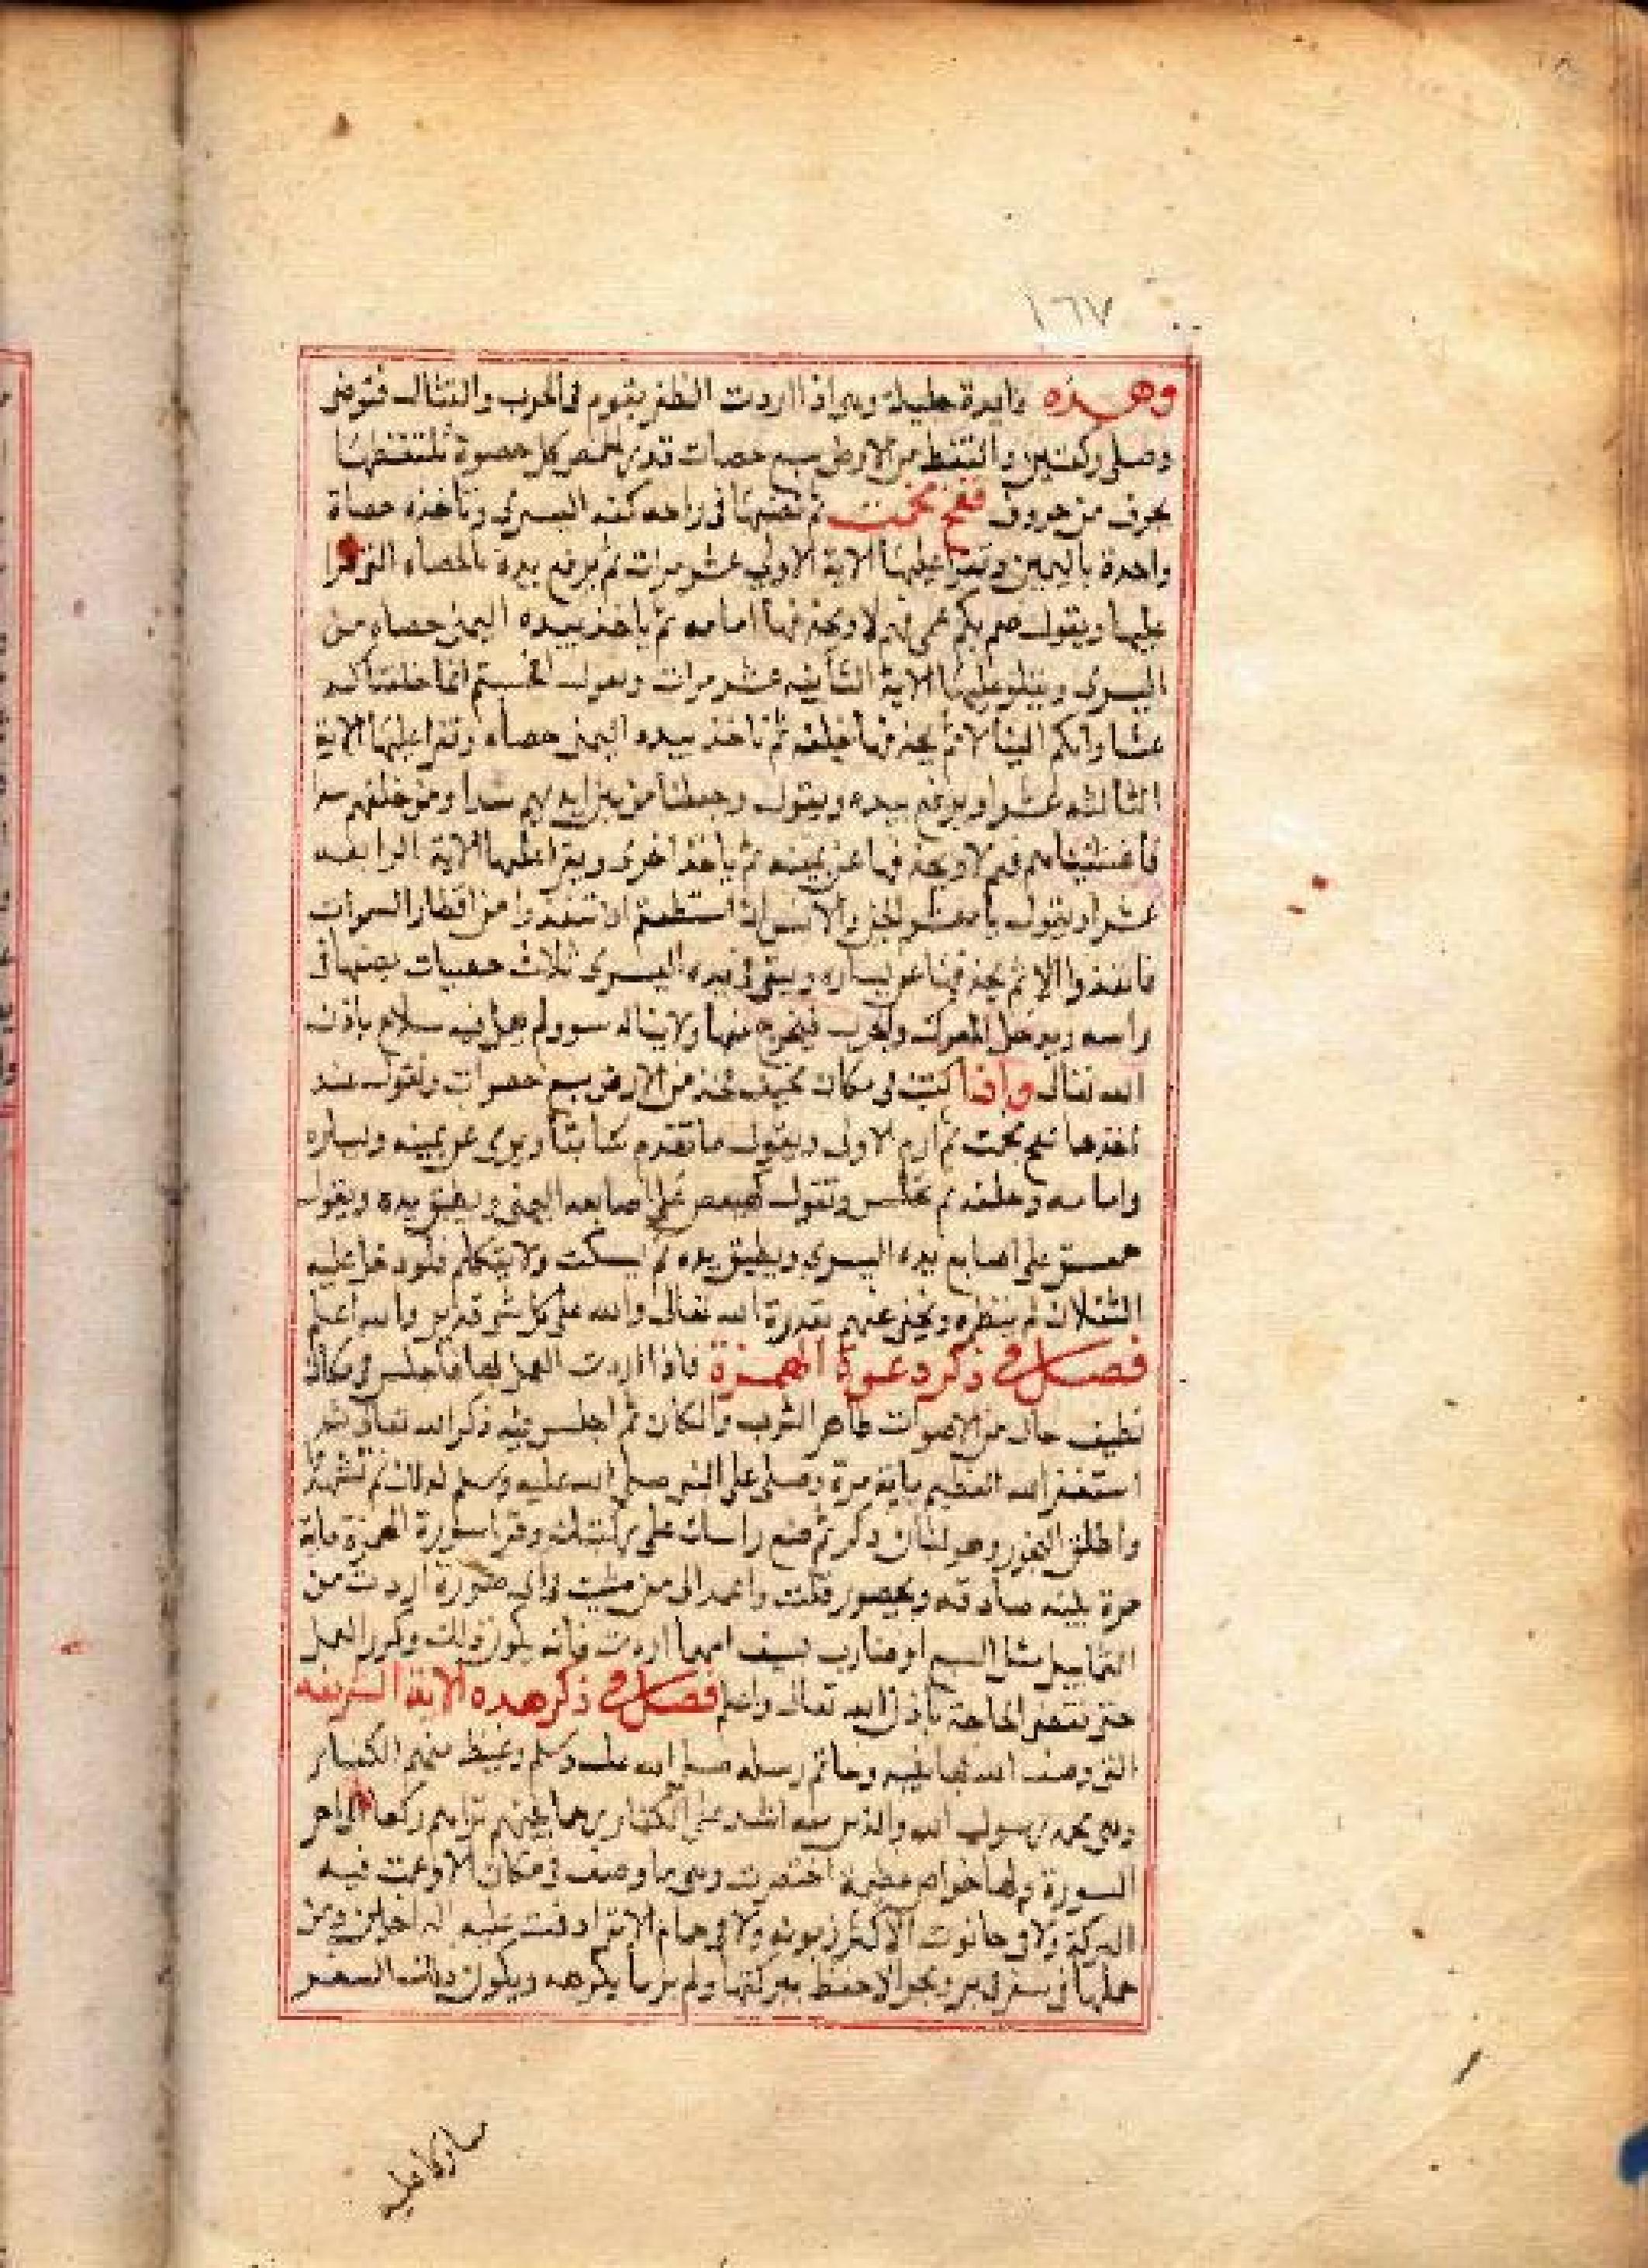 ١٦٧
وهذه فايدة جليلة وهي اذا اردت الظفر بقوم في الحرب والقتال فتوضى
وصلى ركعتين والتقط من الارض سبع حصات قدر الحمص كل حصوة تلتقطها
بحرف من حروف ثم تضعها في راحة كفه اليسرى وتاخذه حصاة
واحدة باليمين وتقرا عليها الاية الاولى عشر مرات ثم يرفع يده بالحصاه التي قرا
عليها ويقول صم بكم عمي فهم لا ويحذفها امامه ثم ياخذ بيده اليمنى حصاه من
اليسرى ويتلو عليها الاية الثانية عشر مرات ويقول افحسبتم انما خلقناكم
عبثا وانكم الينا لا ثم يحذفها خلفه ثم ياخذ بيده اليمنى حصاه وتقرا عليها الاية
الثالثه عشرا ويرفع بيده ويقول وجعلنا من بين ايديهم سدا ومن خلفهم سدا
فاغشيناهم فهم لا ويحذفها عن يمينه ثم ياخذ اخرى ويقرا عليها الاية الرابعه
عشرا ويقول يا معشر الجن والانس ان استطعتم ان تنفذوا من اقطار السموات
فانفذوا الا ثم يحذفها عن يساره ويبقى في يده اليسرى ثلاث حصيات يضعها في
راسه ويدخل المعركه والحرب فيخرج منها ولا يناله سو ولم يعمل فيه سلاح باذن
الله تعالى واذا كنت في مكان مخيف فخذ من الارض سبع حصوات وتقول عند
اخذها ثم ارم الاولى ويقول ما تقدم ويرمي عن يمينه ويساره
وامامه وخلفه ثم تجلس وتقول كهيعص على اصابعه اليمنى ويطبق يده ويقول
حمعسق على اصابع يده اليسرى ويطبق يده ثم يسكت ولا يتكلم فلو دخل عليه
الثقلان لم ينظره ويخفى عنهم بقدرة الله تعالى والله على كل شي قدير والله اعلم
فصل في ذكر دعوة الهمزة فاذا اردت العمل بها فاجلس في مكان
نظيف خال من الاصوات طاهر الثوب والمكان ثم اجلس فيه ذكر الله تعالى ثم
استغفر الله العظيم ماية مرة وصلى على النبي صلى الله عليه وسلم
واطلق البخور وهو لبان ذكر ثم ضع راسك على ركبتك وقرا سورة الهمزة ماية
مرة بنية صادقه وبحضور قلب واعمد الى من في اى صورة اردت من
التماثيل مثل السبع او ضارب بسيف اردت فانه يكون ذلك وكرر العمل
حتى تقضى الحاجة باذن الله تعالى واعلم فصل في ذكر هذه الاية الشريفه
التي وصف الله بها نبيه وخاتم رسله صلى الله عليه وسلم وغيظ منهم الكفار
وهي محمد رسول الله والذين معه اشداء على الكفار رحما بينهم تراهم ركعا الى اخر
السورة ولها خواص عظيمة اختصرت وهي ما وضعت في مكان الا وعمت فيه
البركة ولا في حانوت الا كثر زبونه ولا في حمام الا تزادفت عليه الداخلين ومن
حملها في سفر في بر وبحر الا حفظ ببركتها ولم ير ما يكرهه ويكون ذلك السفر